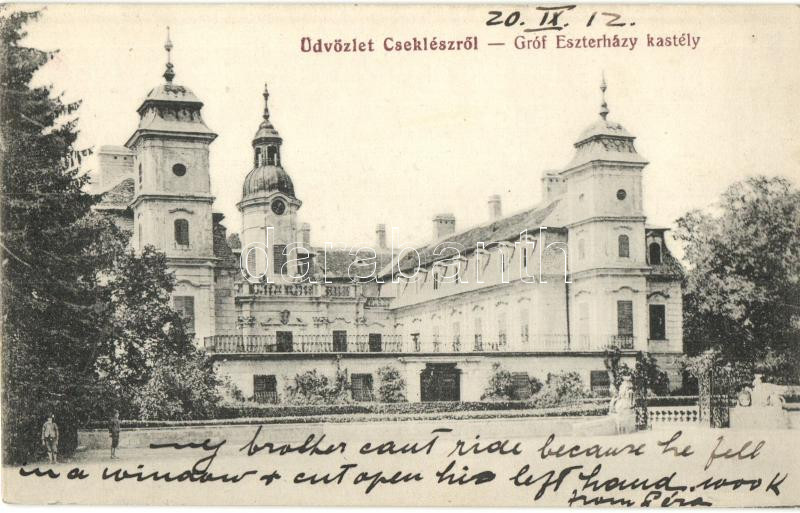 20. IX. 12.
Üdvözlet Cseklészről — Gróf Eszterházy kastély
darabanth
my brother cant ride because he fell
in a window + cut open his left hand.
from Péra